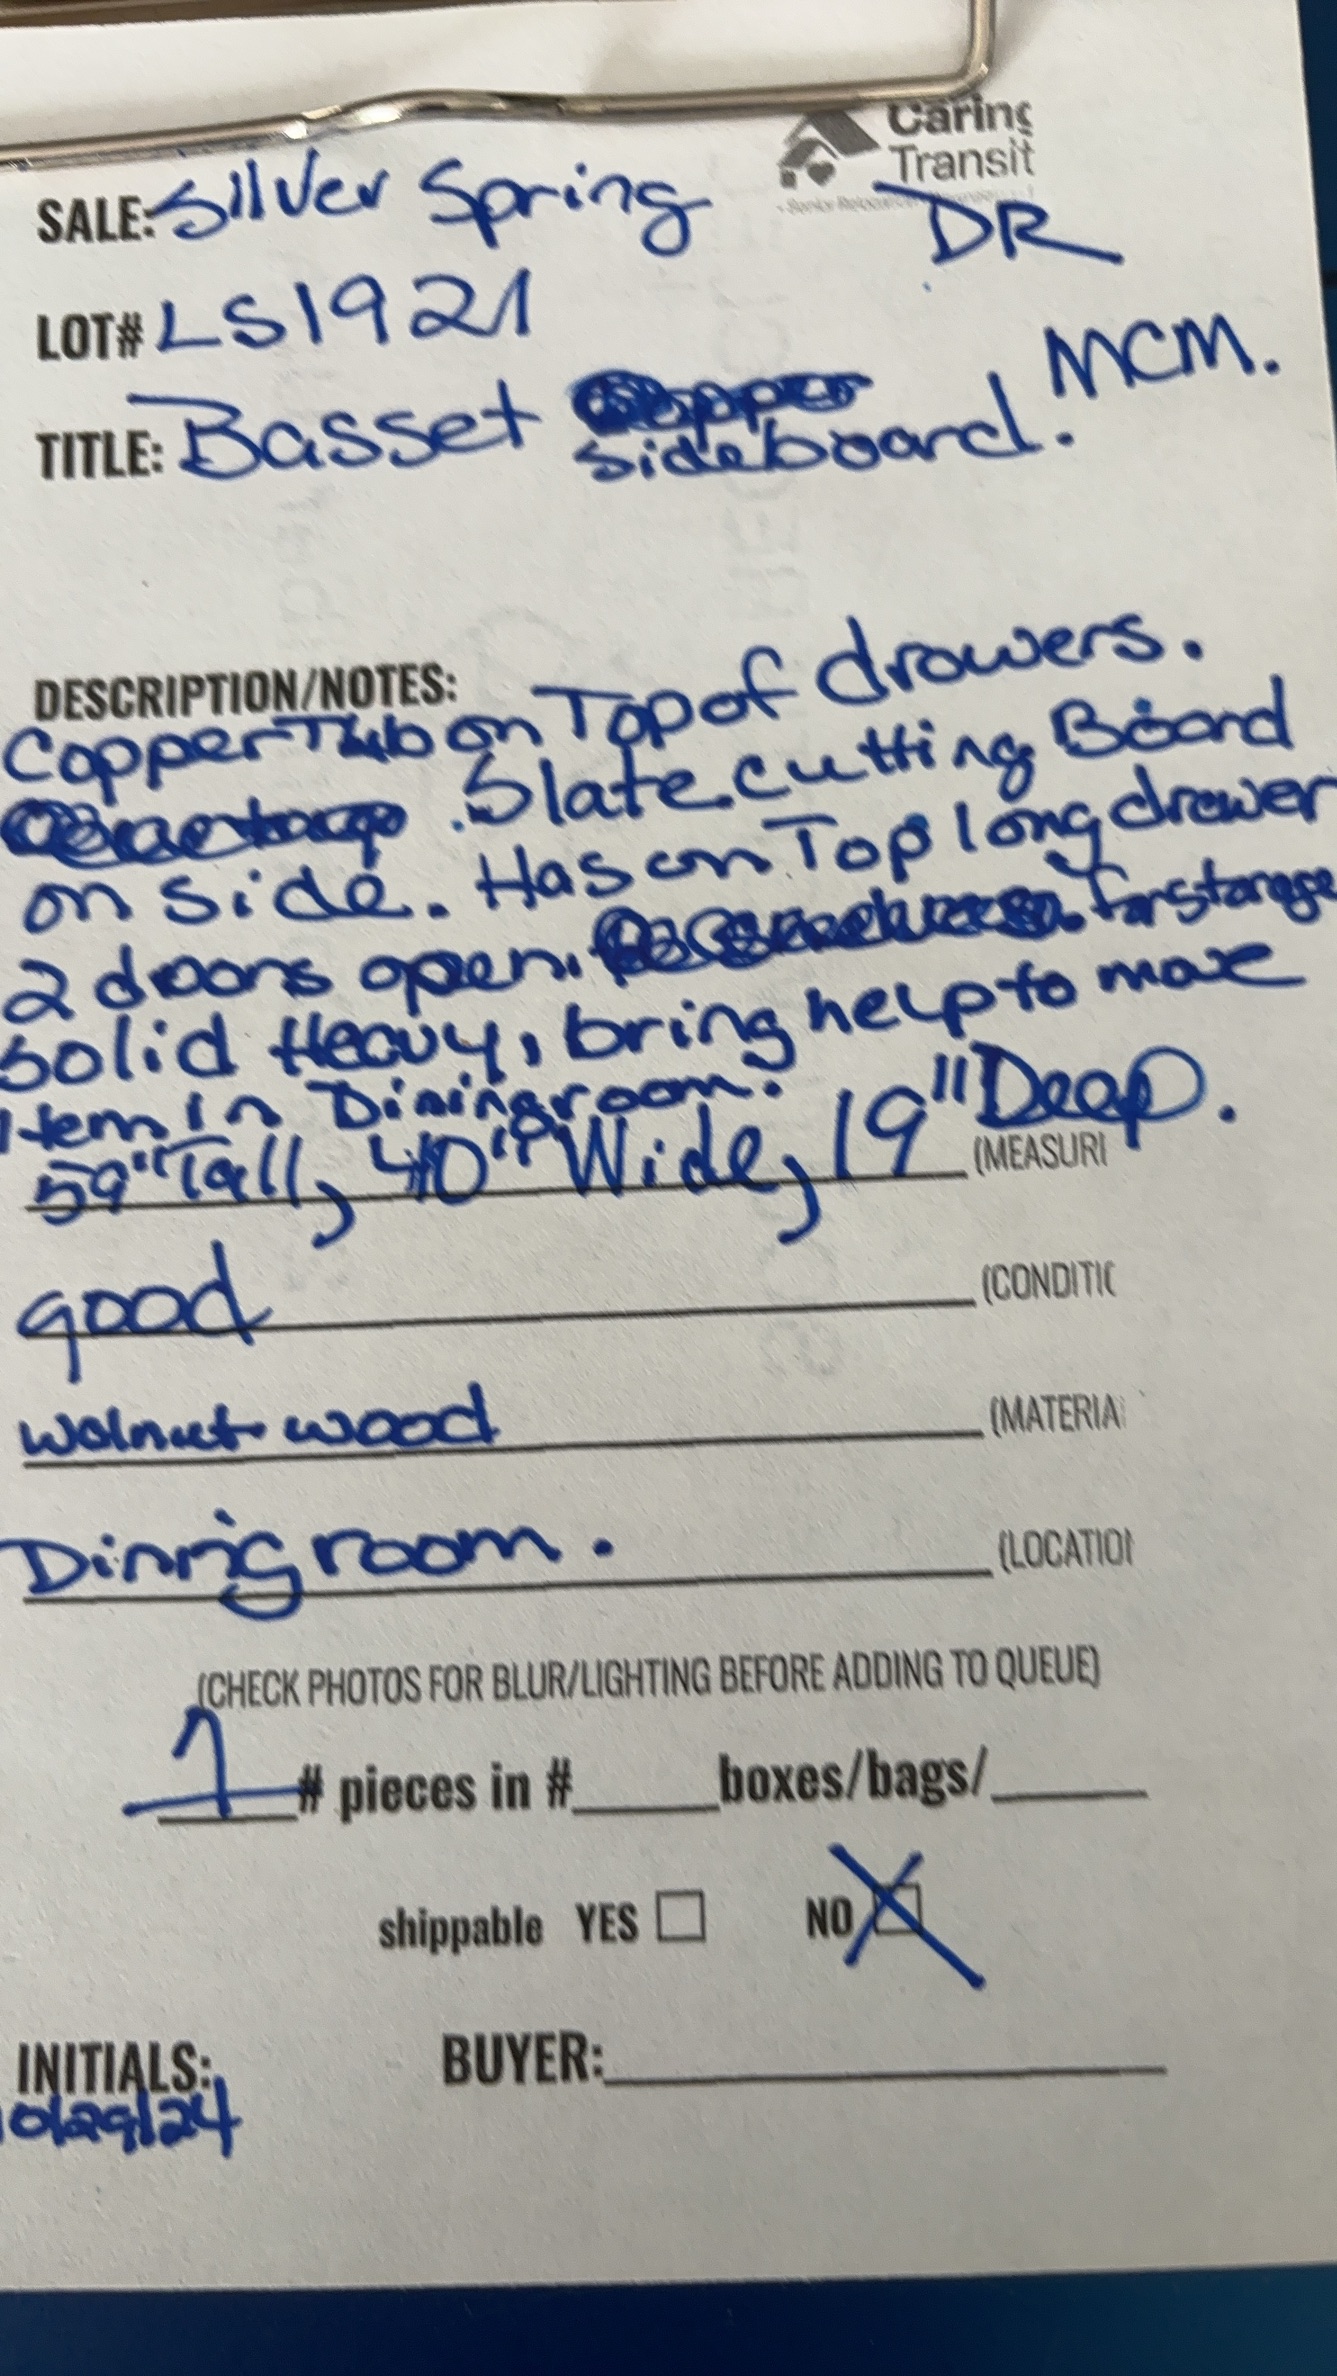 Caring
Transit
SALE: Silver Spring DR
LOT# LS1921
TITLE: Basset sideboard. MCM.
DESCRIPTION/NOTES: on Top of drawers.
Copper Tub
. Slate cutting Board
on side. Has on Top long drawer
2 doors open. for storage
Solid Heavy, bring help to move
Item in Dining room.
59" Tall, 40" Wide, 19" Deep. (MEASURI
good (CONDITIO
walnut wood (MATERIA
Dining room. (LOCATION
(CHECK PHOTOS FOR BLUR/LIGHTING BEFORE ADDING TO QUEUE)
1 # pieces in # boxes/bags/
shippable YES NO X
INITIALS: BUYER:
10/29/24